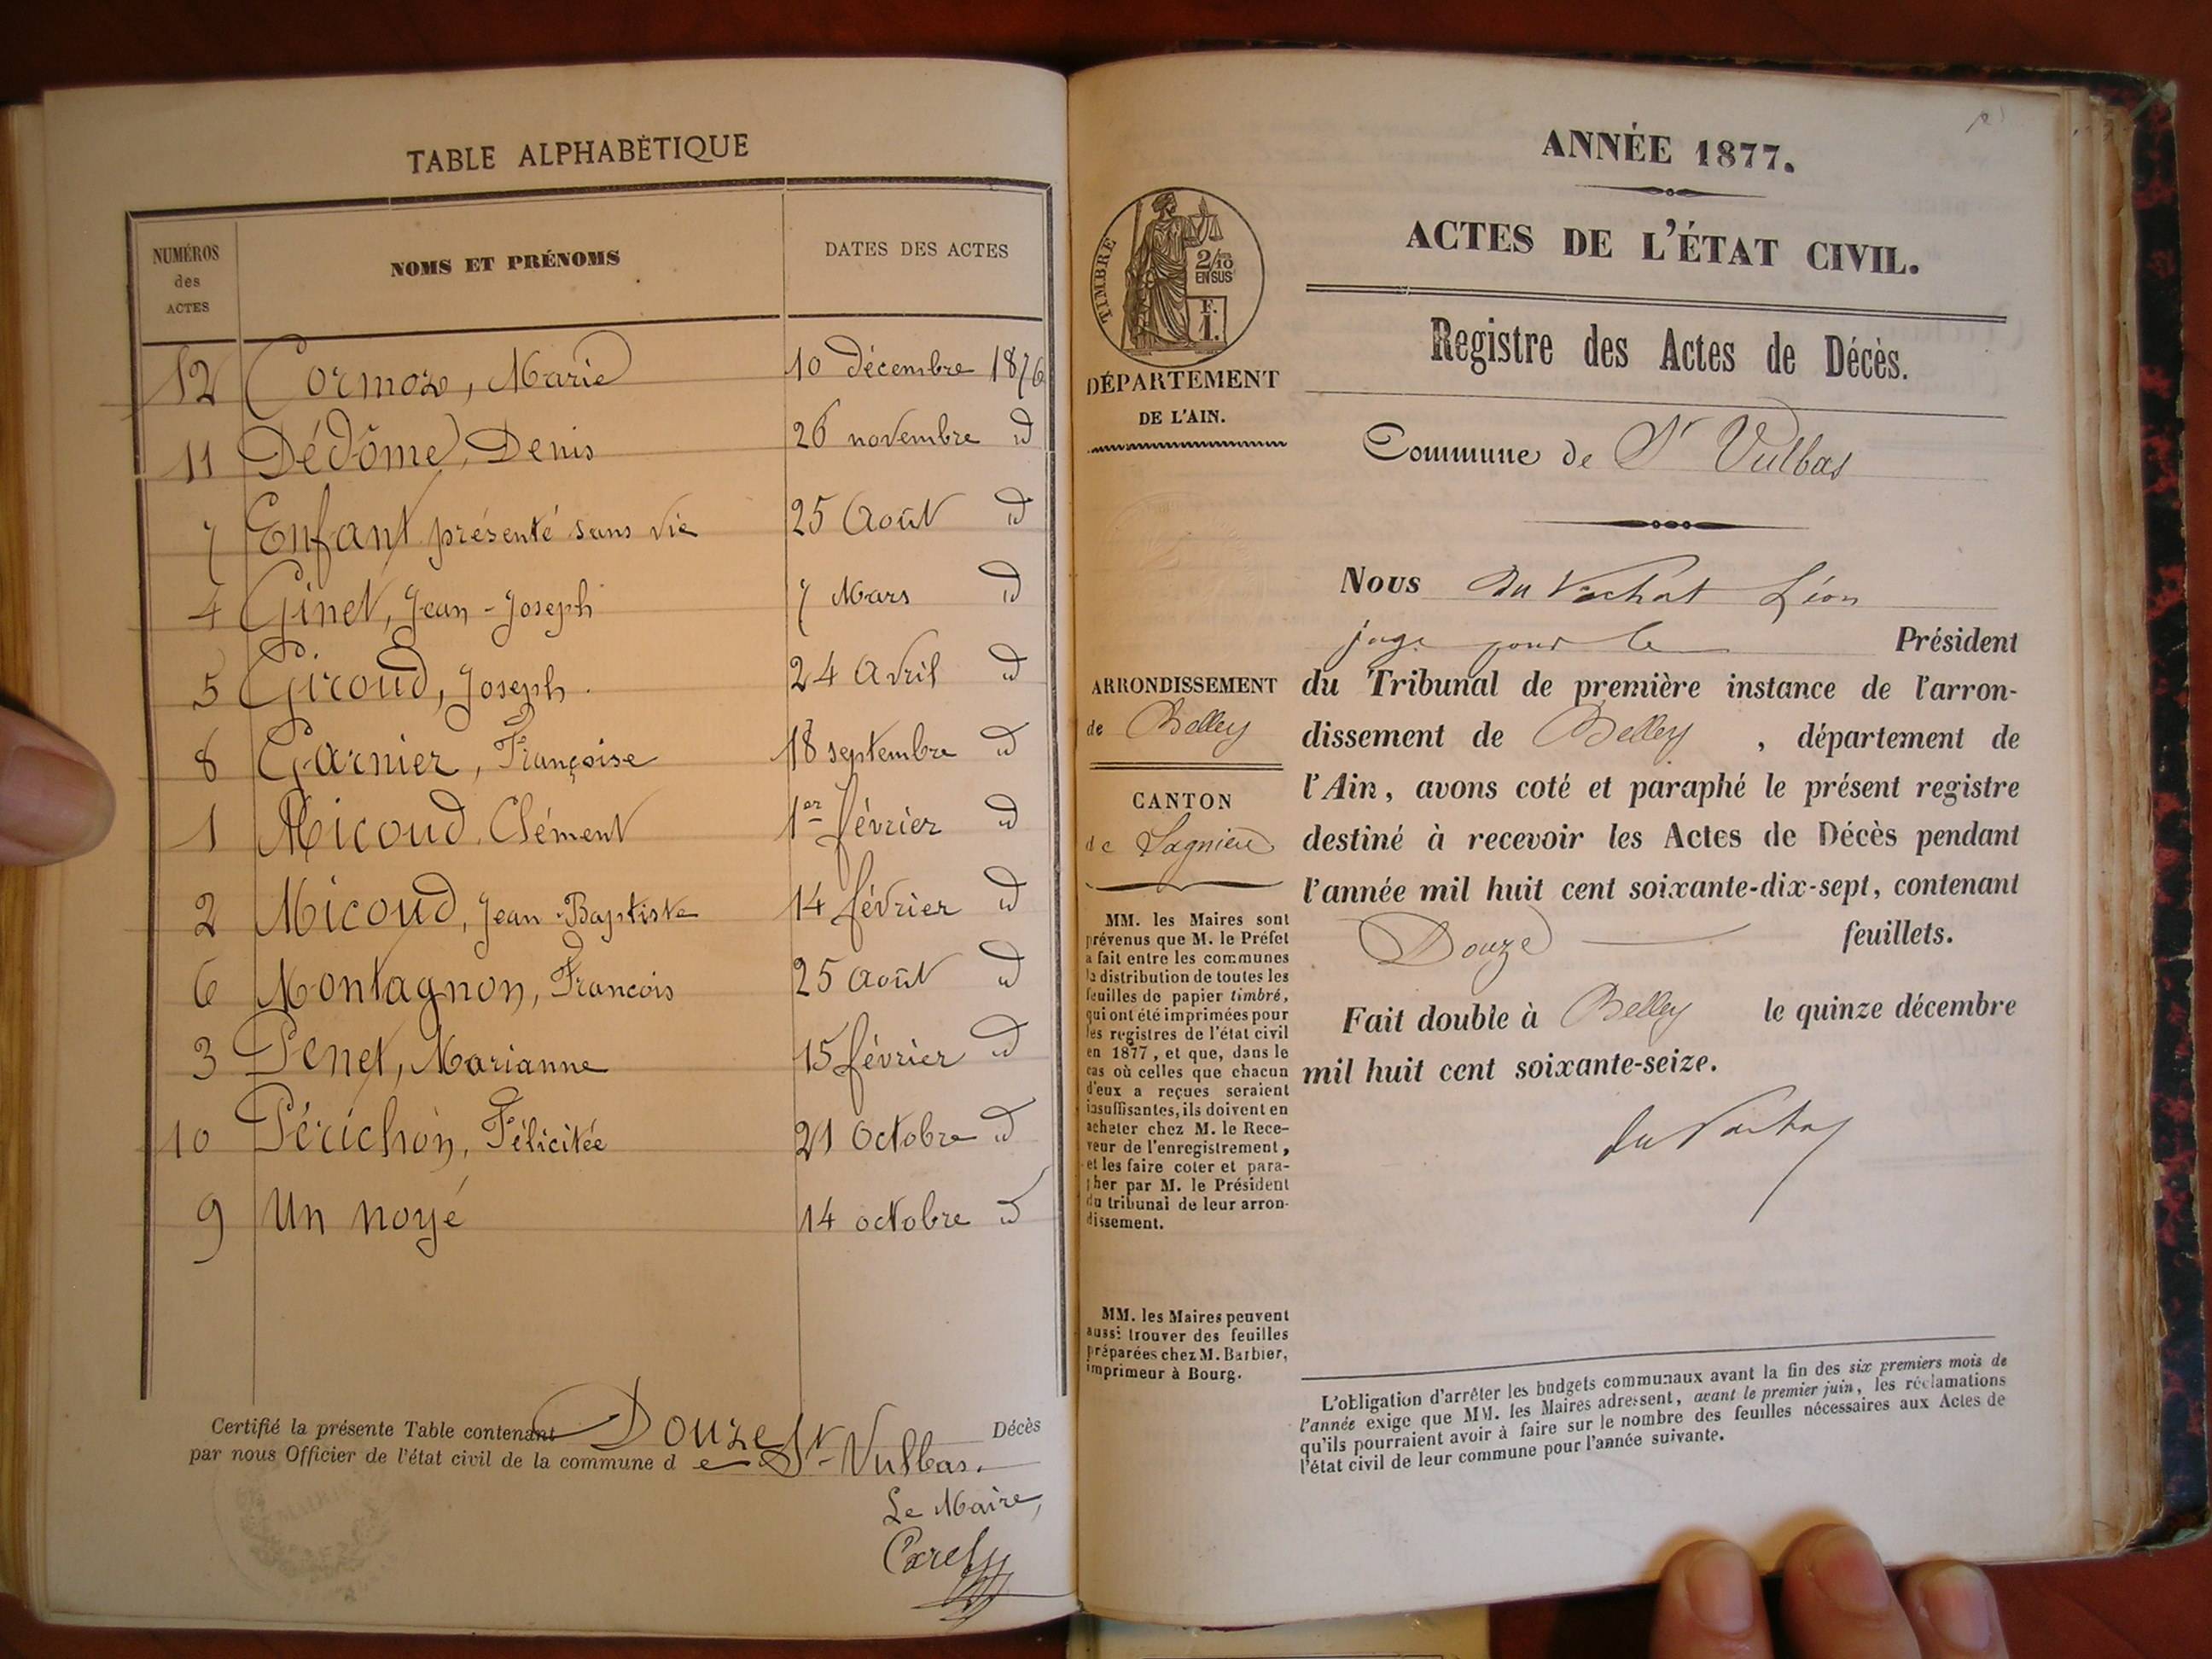 TABLE ALPHABÉTIQUE
NUMÉROS des ACTES
NOMS ET PRÉNOMS
DATES DES ACTES
12 Cormoz, Marie 10 décembre 1876
11 Dédôme, Denis 26 novembre id
7 Enfant présenté sans vie 25 Août id
4 Ginet, Jean-Joseph 7 Mars id
5 Giroud, Joseph. 24 Avril id
8 Garnier, Françoise 18 septembre id
1 Micoud, Clément 1er février id
2 Micoud, Jean-Baptiste 14 février id
6 Montagnon, François 25 août id
3 Penet, Marianne 15 février id
10 Périchon, Félicitée 21 octobre id
9 Un noyé 14 octobre id
Certifié la présente Table contenant Douze Décès
par nous Officier de l'état civil de la commune de St Vulbas.
Le Maire,
ANNÉE 1877.
ACTES DE L'ÉTAT CIVIL.
TIMBRE
2/10
EN SUS
F.
1.
DÉPARTEMENT
DE L'AIN.
Registre des Actes de Décès.
Commune de St Vulbas
Nous du Vachat Léon
juge pour le Président
ARRONDISSEMENT
de Belley
CANTON
de Lagnieu
du Tribunal de première instance de l'arron-
dissement de Belley, département de
l'Ain, avons coté et paraphé le présent registre
destiné à recevoir les Actes de Décès pendant
l'année mil huit cent soixante-dix-sept, contenant
Douze feuillets.
Fait double à Belley le quinze décembre
mil huit cent soixante-seize.
du Vachat
MM. les Maires sont
prévenus que M. le Préfet
a fait entre les communes
la distribution de toutes les
feuilles de papier timbré,
qui ont été imprimées pour
les registres de l'état civil
en 1877, et que, dans le
cas où celles que chacun
d'eux a reçues seraient
insuffisantes, ils doivent en
acheter chez M. le Rece-
veur de l'enregistrement,
et les faire coter et para-
pher par M. le Président
du tribunal de leur arron-
dissement.
MM. les Maires peuvent
aussi trouver des feuilles
préparées chez M. Barbier,
imprimeur à Bourg.
L'obligation d'arrêter les budgets communaux avant la fin des six premiers mois de
l'année exige que MM. les Maires adressent, avant le premier juin, les réclamations
qu'ils pourraient avoir à faire sur le nombre des feuilles nécessaires aux Actes de
l'état civil de leur commune pour l'année suivante.